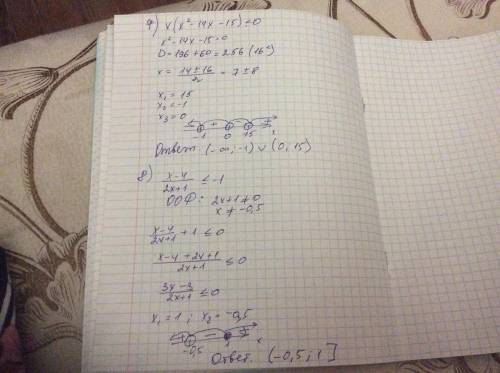 7) x(x²-14x-15)<0
x²-14x-15=0
D=196+60=256 (16²)
x = (14±16)/2 = 7±8
x₁ = 15
x₂ = -1
x₃ = 0
- + - +
-1 0 15 x
Ответ: (-∞; -1) ∪ (0; 15)
8) (x-4)/(2x+1) ≤ -1
ООФ: 2x+1≠0
x ≠ -0,5
(x-4)/(2x+1) + 1 ≤ 0
(x-4+2x+1)/(2x+1) ≤ 0
(3x-3)/(2x+1) ≤ 0
x₁ = 1 ; x₂ = -0,5
+ - +
-0,5 1 x
Ответ. (-0,5; 1]